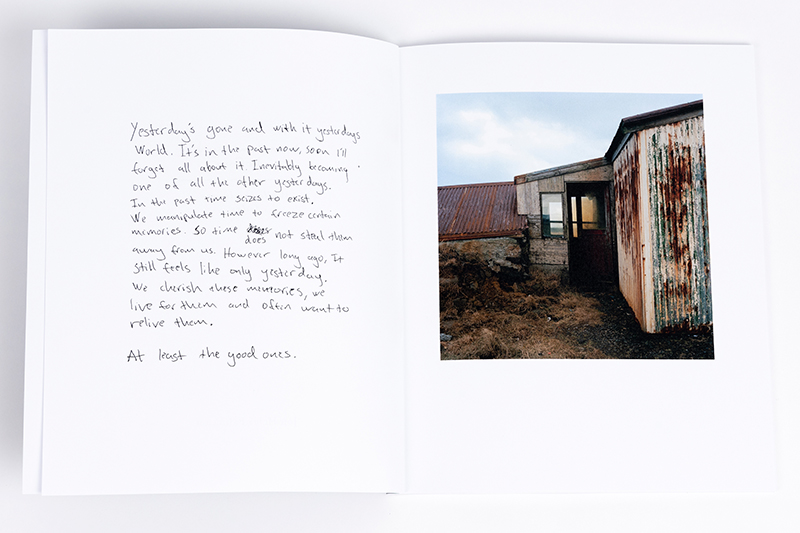 Yesterday's gone and with it yesterdays
World. It's in the past now, soon I'll
forget all about it. Inevitably becoming
one of all the other yesterdays.
In the past time seizes to exist.
We manipulate time to freeze certain
memories. So time does not steal them
away from us. However long ago, It
still feels like only yesterday.
We cherish these memories, we
live for them and often want to
relive them.
At least the good ones.